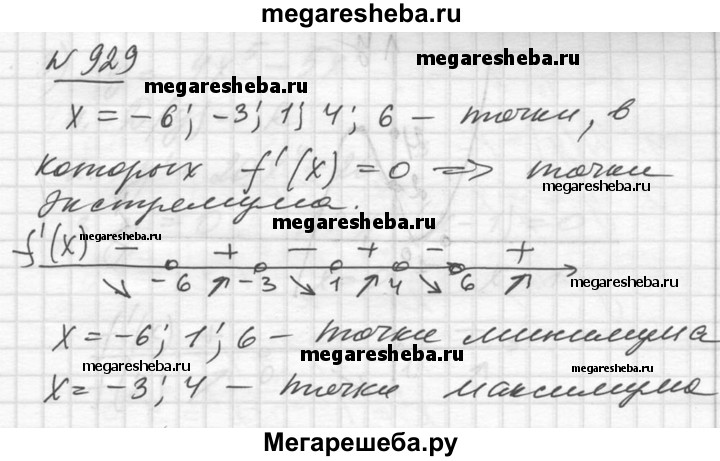 megaresheba.ru
N 929
megaresheba.ru megaresheba.ru
x = -6; -3; 1; 4; 6 - точки, в
которых f'(x) = 0 => точки
megaresheba.ru
экстремума.
megaresheba.ru
f'(x) - + - + - +
megaresheba.ru megaresheba.ru
↘ -6 ↗ -3 ↘ 1 ↗ 4 ↘ 6 ↗
x = -6; 1; 6 - точки минимума
megaresheba.ru megaresheba.ru megaresheba.ru
x = -3; 4 - точки максимума
Мегарешеба.ру